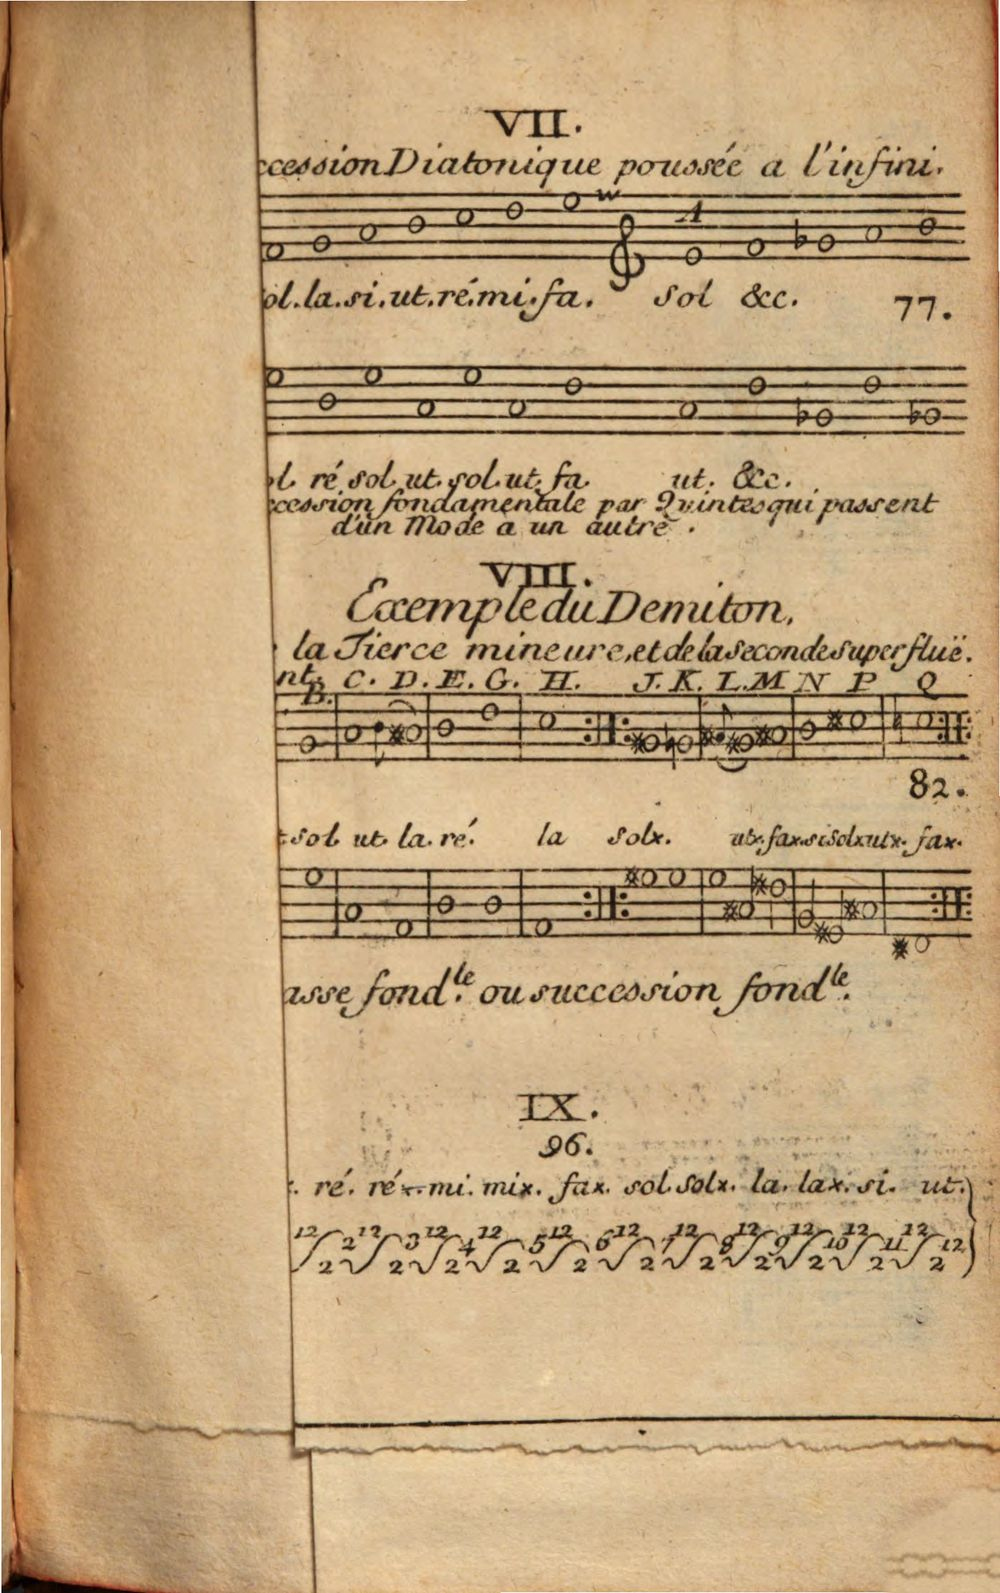 VII.
ccession Diatonique poussée a l'infini.
A
ol. la. si. ut. ré. mi. fa. Sol &c. 77.
l ré sol ut sol ut fa ut. &c.
ccession fondamentale par Quintes qui passent
d'un Mode a un autre.
VIII.
Exemple du Demiton,
la Tierce mineure, et de la seconde superfluë.
nt. B. C. D. E. G. H. J. K. L. M N P Q
82.
t sol ut la. ré. la solx. utx. fax. si solx utx. fax.
asse fond.le ou succession fond.le
IX.
96.
. ré. réx. mi. mix. fax. sol. solx. la. lax. si. ut.
12 2 12 3 12 4 12 5 12 6 12 7 12 8 12 9 12 10 12 11 12 12
2 2 2 2 2 2 2 2 2 2 2